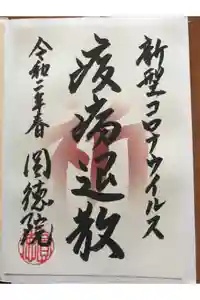 新型コロナウイルス
疫病退散
令和二年春
圓徳院